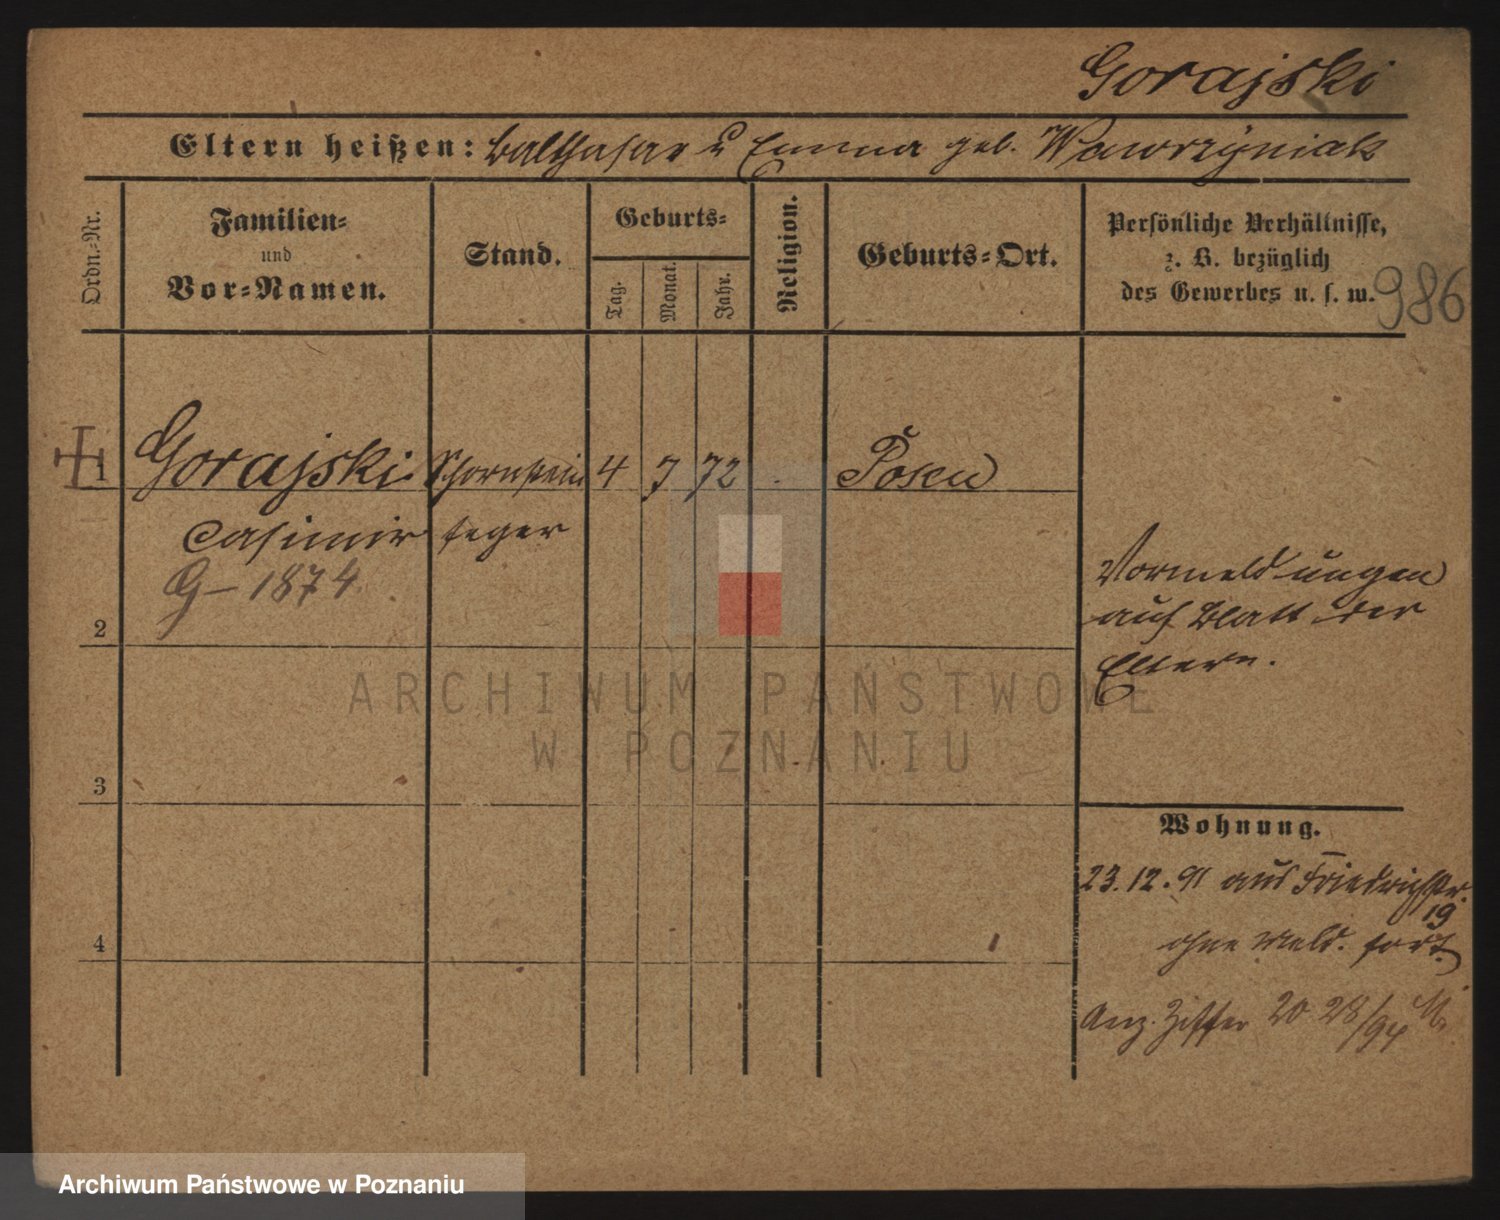 Gorajski
Eltern heißen: Balthasar u Emma geb. Wawrzyniak
Ordn.-Nr.
Familien-
und
Vor-Namen.
Stand.
Geburts-
Tag.
Monat.
Jahr.
Religion.
Geburts-Ort.
Persönliche Verhältnisse,
z. B. bezüglich
des Gewerbes u. s. w.
986
1 Gorajski Schornstein 4 7 72 Posen
Casimir feger
G-1874
Vormeldungen
auf Blatt der
Eltern.
2
3
4
Wohnung.
23.12.91 aus Friedrichstr.
19
ohne Meld. fort.
Anz. Ziffer 20 28/94
ARCHIWUM PAŃSTWOWE
W POZNANIU
Archiwum Państwowe w Poznaniu